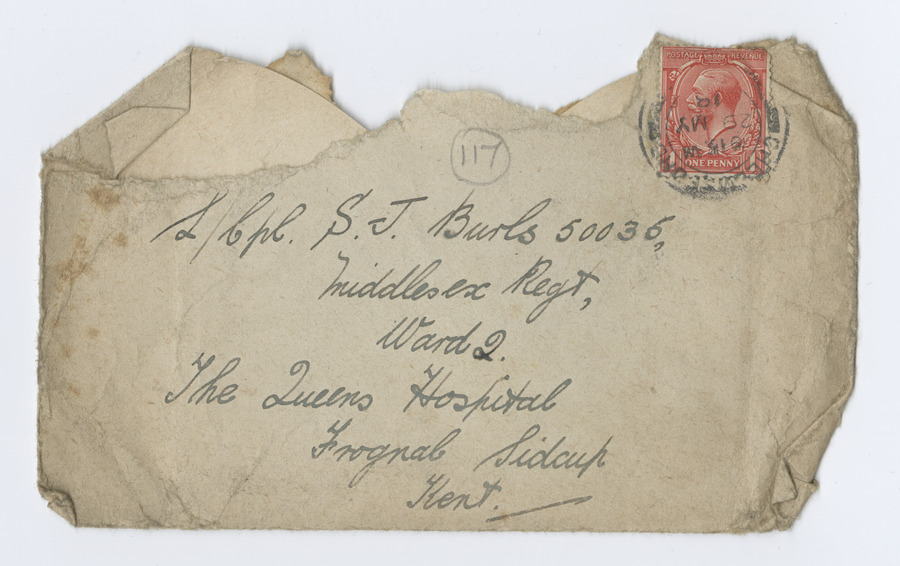 POSTAGE REVENUE
ONE PENNY
117
L/Cpl. S. J. Burls 50035,
Middlesex Regt,
Ward 2.
The Queens Hospital
Frognal Sidcup
Kent.